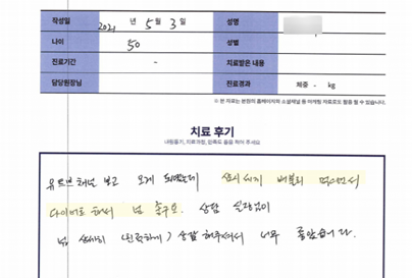 작성일 2021 년 5 월 3 일 성명
나이 50 성별
진료기간 - 치료받은 내용
담당원장님 진료경과 체중 - kg
※ 본 자료는 본원의 홈페이지와 소셜채널 등 마케팅 자료로도 활용 될 수 있습니다.
치료 후기
내원동기, 치료과정, 만족도 등을 적어 주세요
유튜브채널 보고 오게 되었는데 먹으면서
다이어트 해서 넘 좋구요. 상담 실장님이
넘 상세히 (친절하게) 상담 해주셔서 너무 좋았습니다.